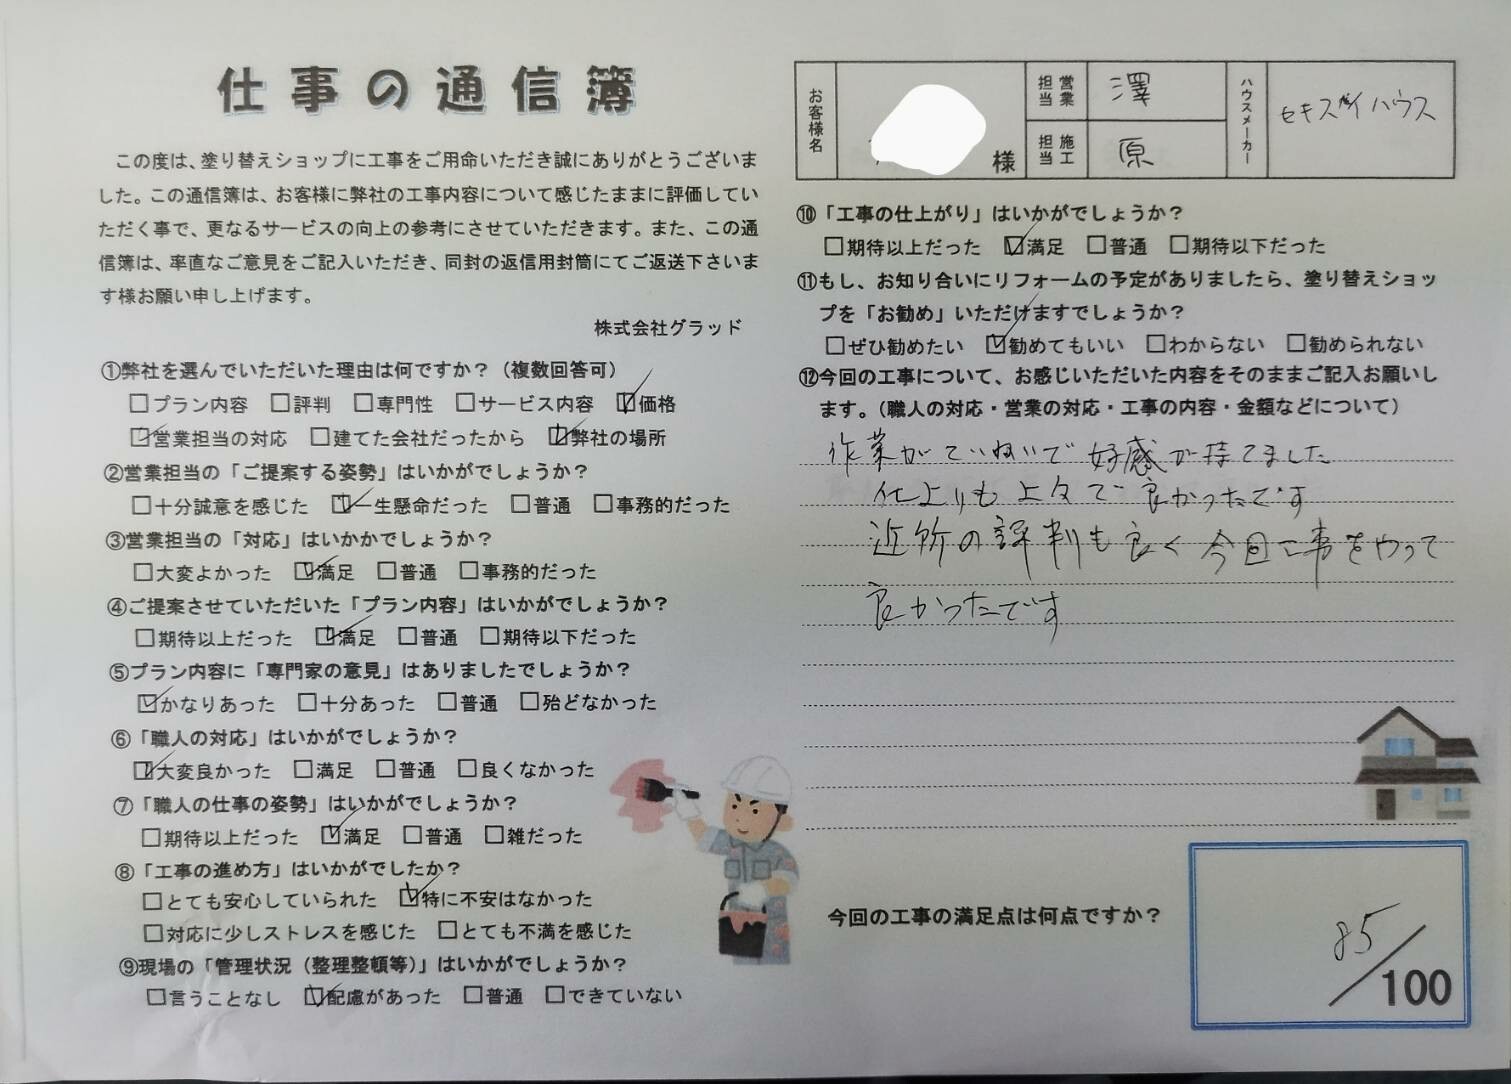 仕事の通信簿
この度は、塗り替えショップに工事をご用命いただき誠にありがとうございま
した。この通信簿は、お客様に弊社の工事内容について感じたままに評価してい
ただく事で、更なるサービスの向上の参考にさせていただきます。また、この通
信簿は、率直なご意見をご記入いただき、同封の返信用封筒にてご返送下さいま
す様お願い申し上げます。
株式会社グラッド
①弊社を選んでいただいた理由は何ですか？（複数回答可）
□プラン内容 □評判 □専門性 □サービス内容 ☑価格
☑営業担当の対応 □建てた会社だったから ☑弊社の場所
②営業担当の「ご提案する姿勢」はいかがでしょうか？
□十分誠意を感じた ☑一生懸命だった □普通 □事務的だった
③営業担当の「対応」はいかかでしょうか？
□大変よかった ☑満足 □普通 □事務的だった
④ご提案させていただいた「プラン内容」はいかがでしょうか？
□期待以上だった ☑満足 □普通 □期待以下だった
⑤プラン内容に「専門家の意見」はありましたでしょうか？
☑かなりあった □十分あった □普通 □殆どなかった
⑥「職人の対応」はいかがでしょうか？
☑大変良かった □満足 □普通 □良くなかった
⑦「職人の仕事の姿勢」はいかがでしょうか？
□期待以上だった ☑満足 □普通 □雑だった
⑧「工事の進め方」はいかがでしたか？
□とても安心していられた ☑特に不安はなかった
□対応に少しストレスを感じた □とても不満を感じた
⑨現場の「管理状況（整理整頓等）」はいかがでしょうか？
□言うことなし ☑配慮があった □普通 □できていない
お客様名 様 営業担当 澤 ハウスメーカー セキスイハウス
施工担当 原
⑩「工事の仕上がり」はいかがでしょうか？
□期待以上だった ☑満足 □普通 □期待以下だった
⑪もし、お知り合いにリフォームの予定がありましたら、塗り替えショッ
プを「お勧め」いただけますでしょうか？
□ぜひ勧めたい ☑勧めてもいい □わからない □勧められない
⑫今回の工事について、お感じいただいた内容をそのままご記入お願いし
ます。（職人の対応・営業の対応・工事の内容・金額などについて）
作業がていねいで 好感が持てました
仕上りも上々で良かったです
近所の評判も良く今回工事をやって
良かったです
今回の工事の満足点は何点ですか？
85/100